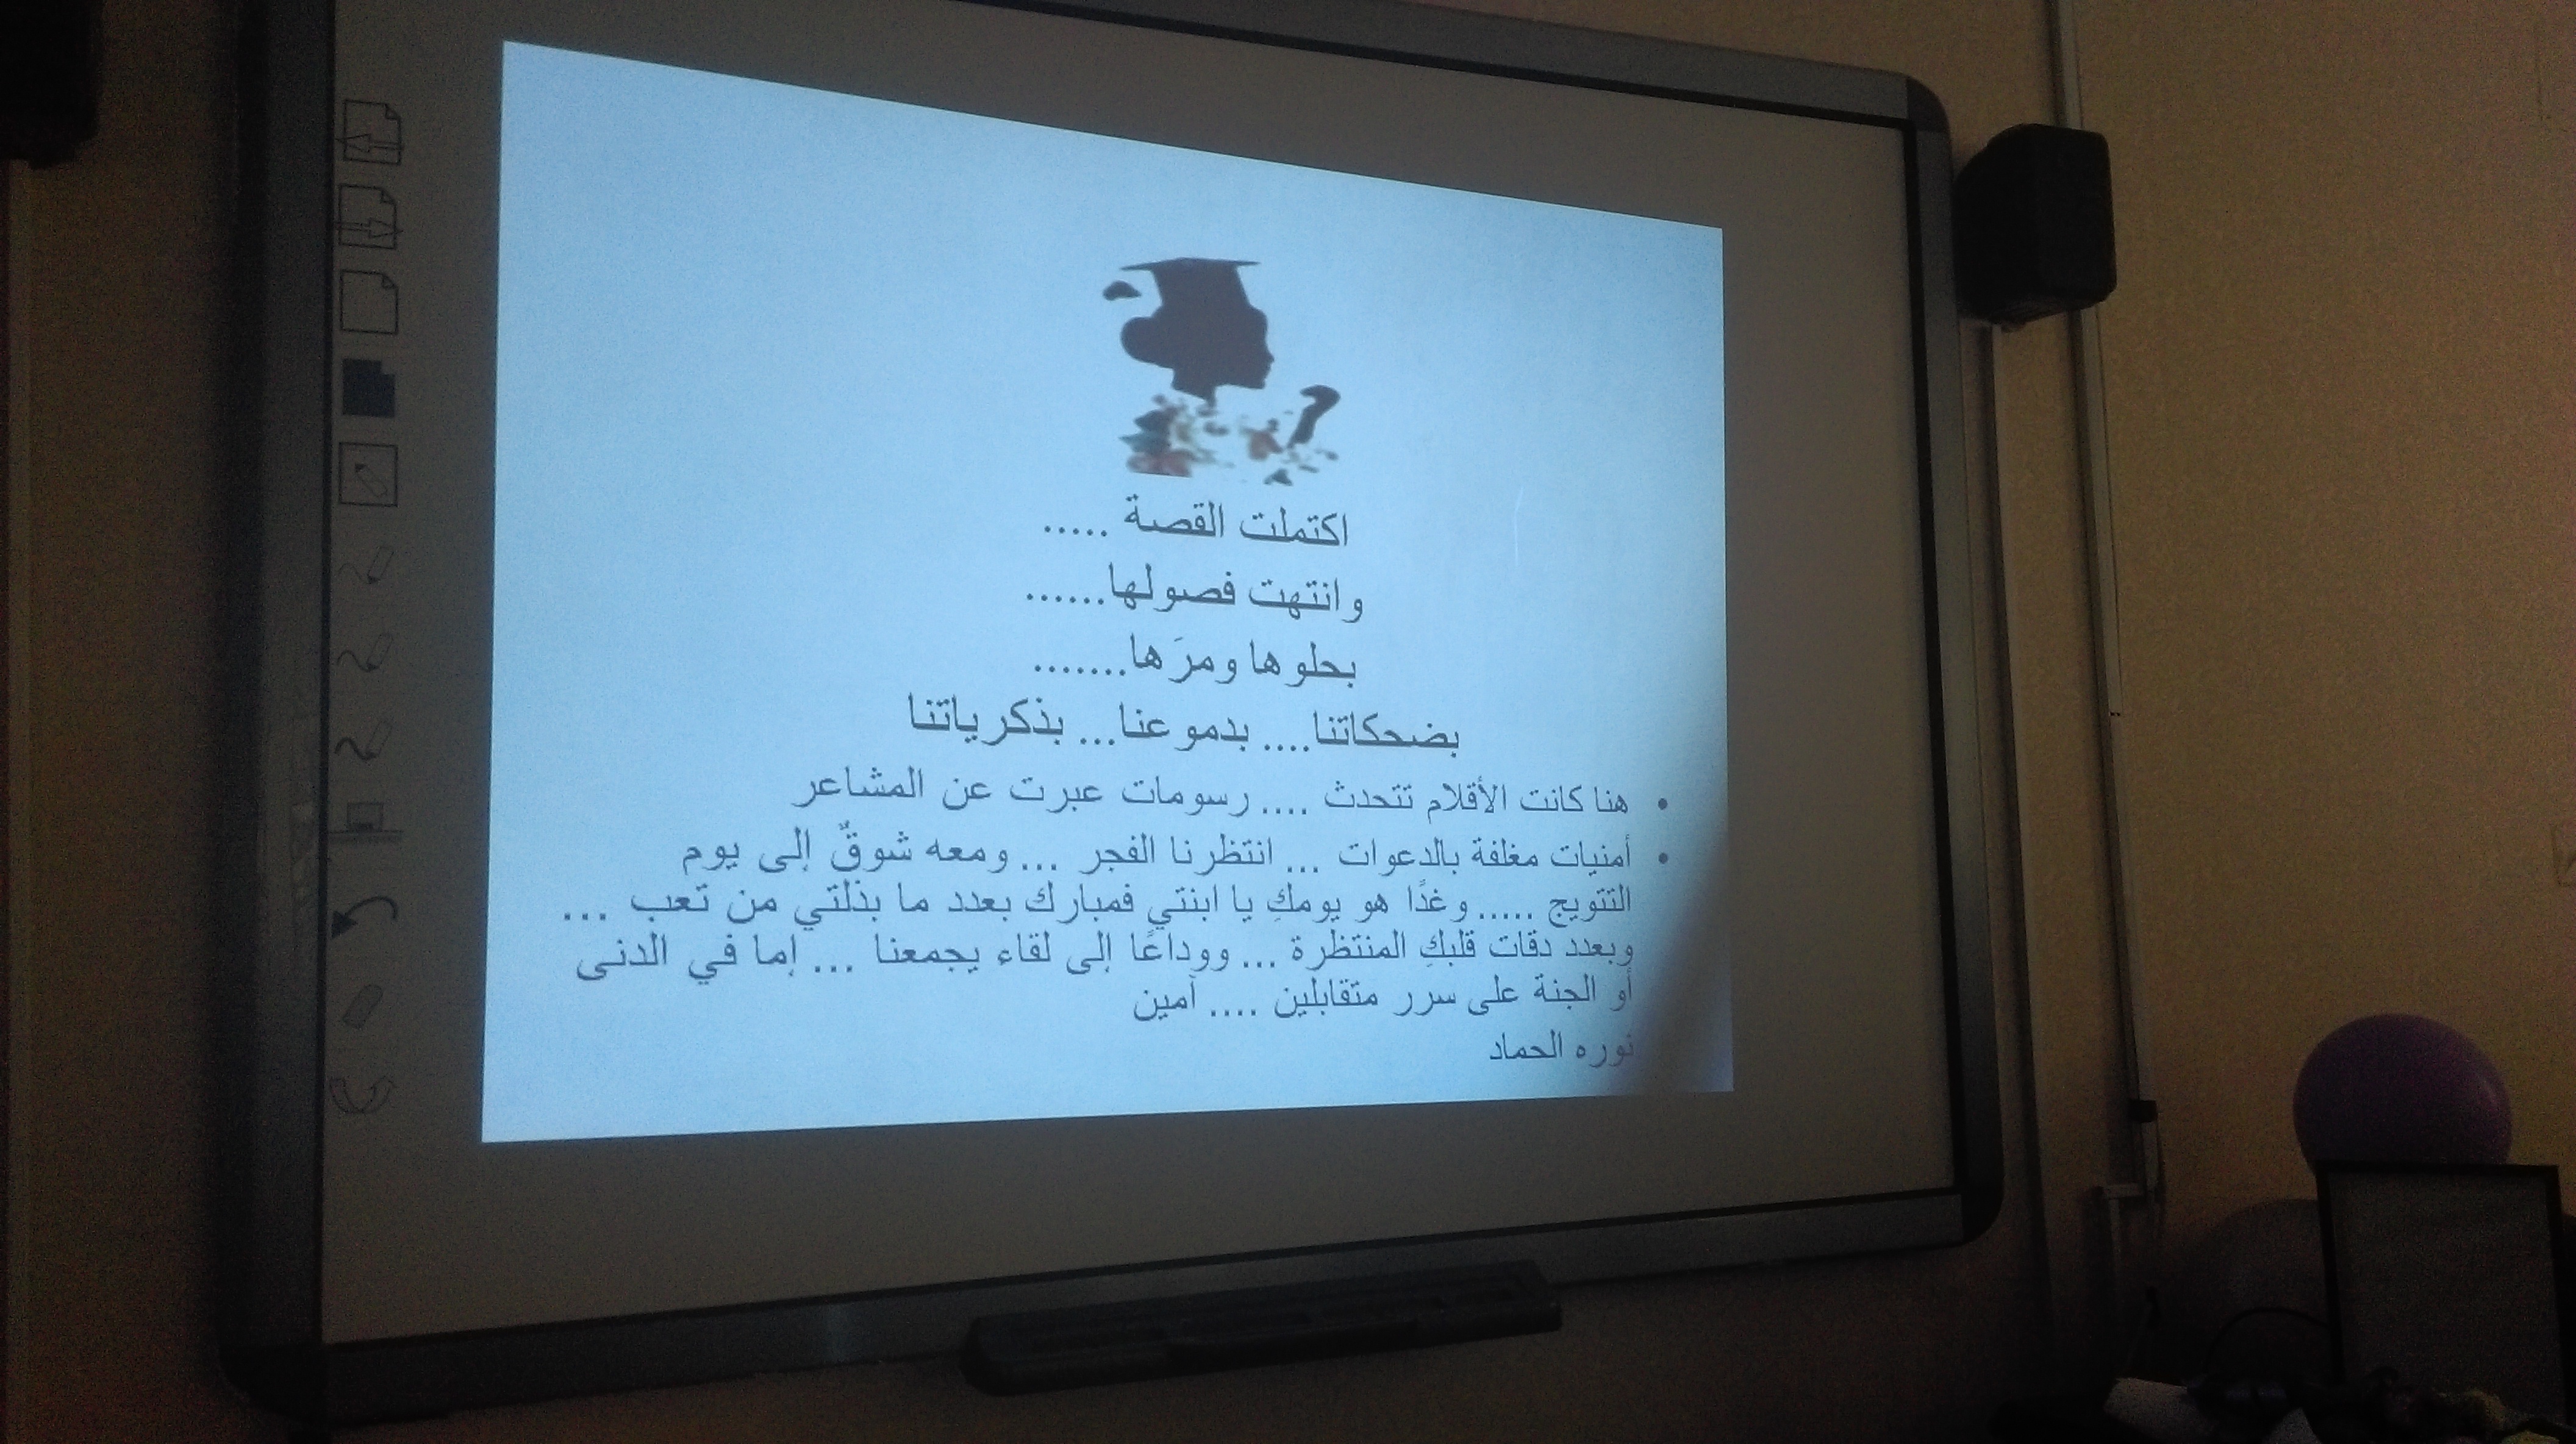 اكتملت القصة .....
وانتهت فصولها......
بحلوها ومرَها.......
بضحكاتنا.... بدموعنا... بذكرياتنا
• هنا كانت الأقلام تتحدث .... رسومات عبرت عن المشاعر
• أمنيات مغلفة بالدعوات ... انتظرنا الفجر ... ومعه شوقٌ إلى يوم
التتويج ..... وغدًا هو يومكِ يا ابنتي فمبارك بعدد ما بذلتي من تعب ...
وبعدد دقات قلبكِ المنتظرة ... ووداعًا إلى لقاء يجمعنا ... إما في الدنى
أو الجنة على سرر متقابلين .... آمين
نوره الحماد